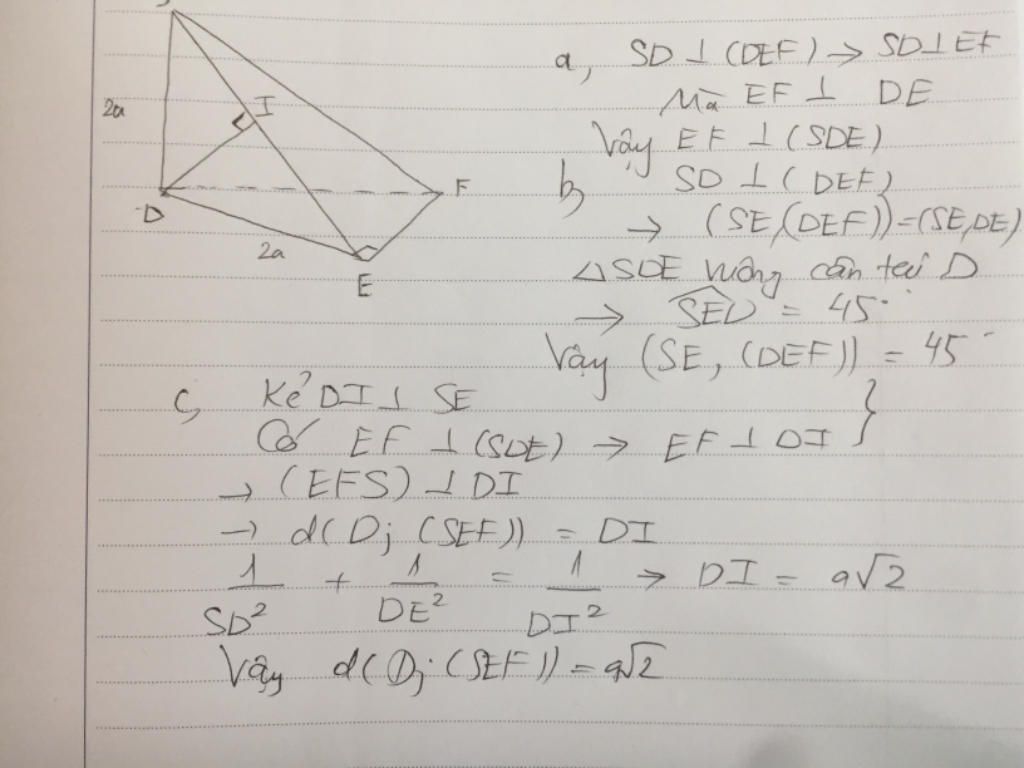 S
2a
I
D
F
2a
E
a, SD ⊥ (DEF) → SD ⊥ EF
Mà EF ⊥ DE
Vậy EF ⊥ (SDE)
b, SD ⊥ (DEF)
→ (SE,(DEF)) = (SE,DE)
△SDE vuông cân tại D
→ SED = 45°
Vậy (SE, (DEF)) = 45°
c, Kẻ DI ⊥ SE
Có EF ⊥ (SDE) → EF ⊥ DI }
→ (EFS) ⊥ DI
→ d(D; (SEF)) = DI
1/SD² + 1/DE² = 1/DI² → DI = a√2
Vậy d(D; (SEF)) = a√2